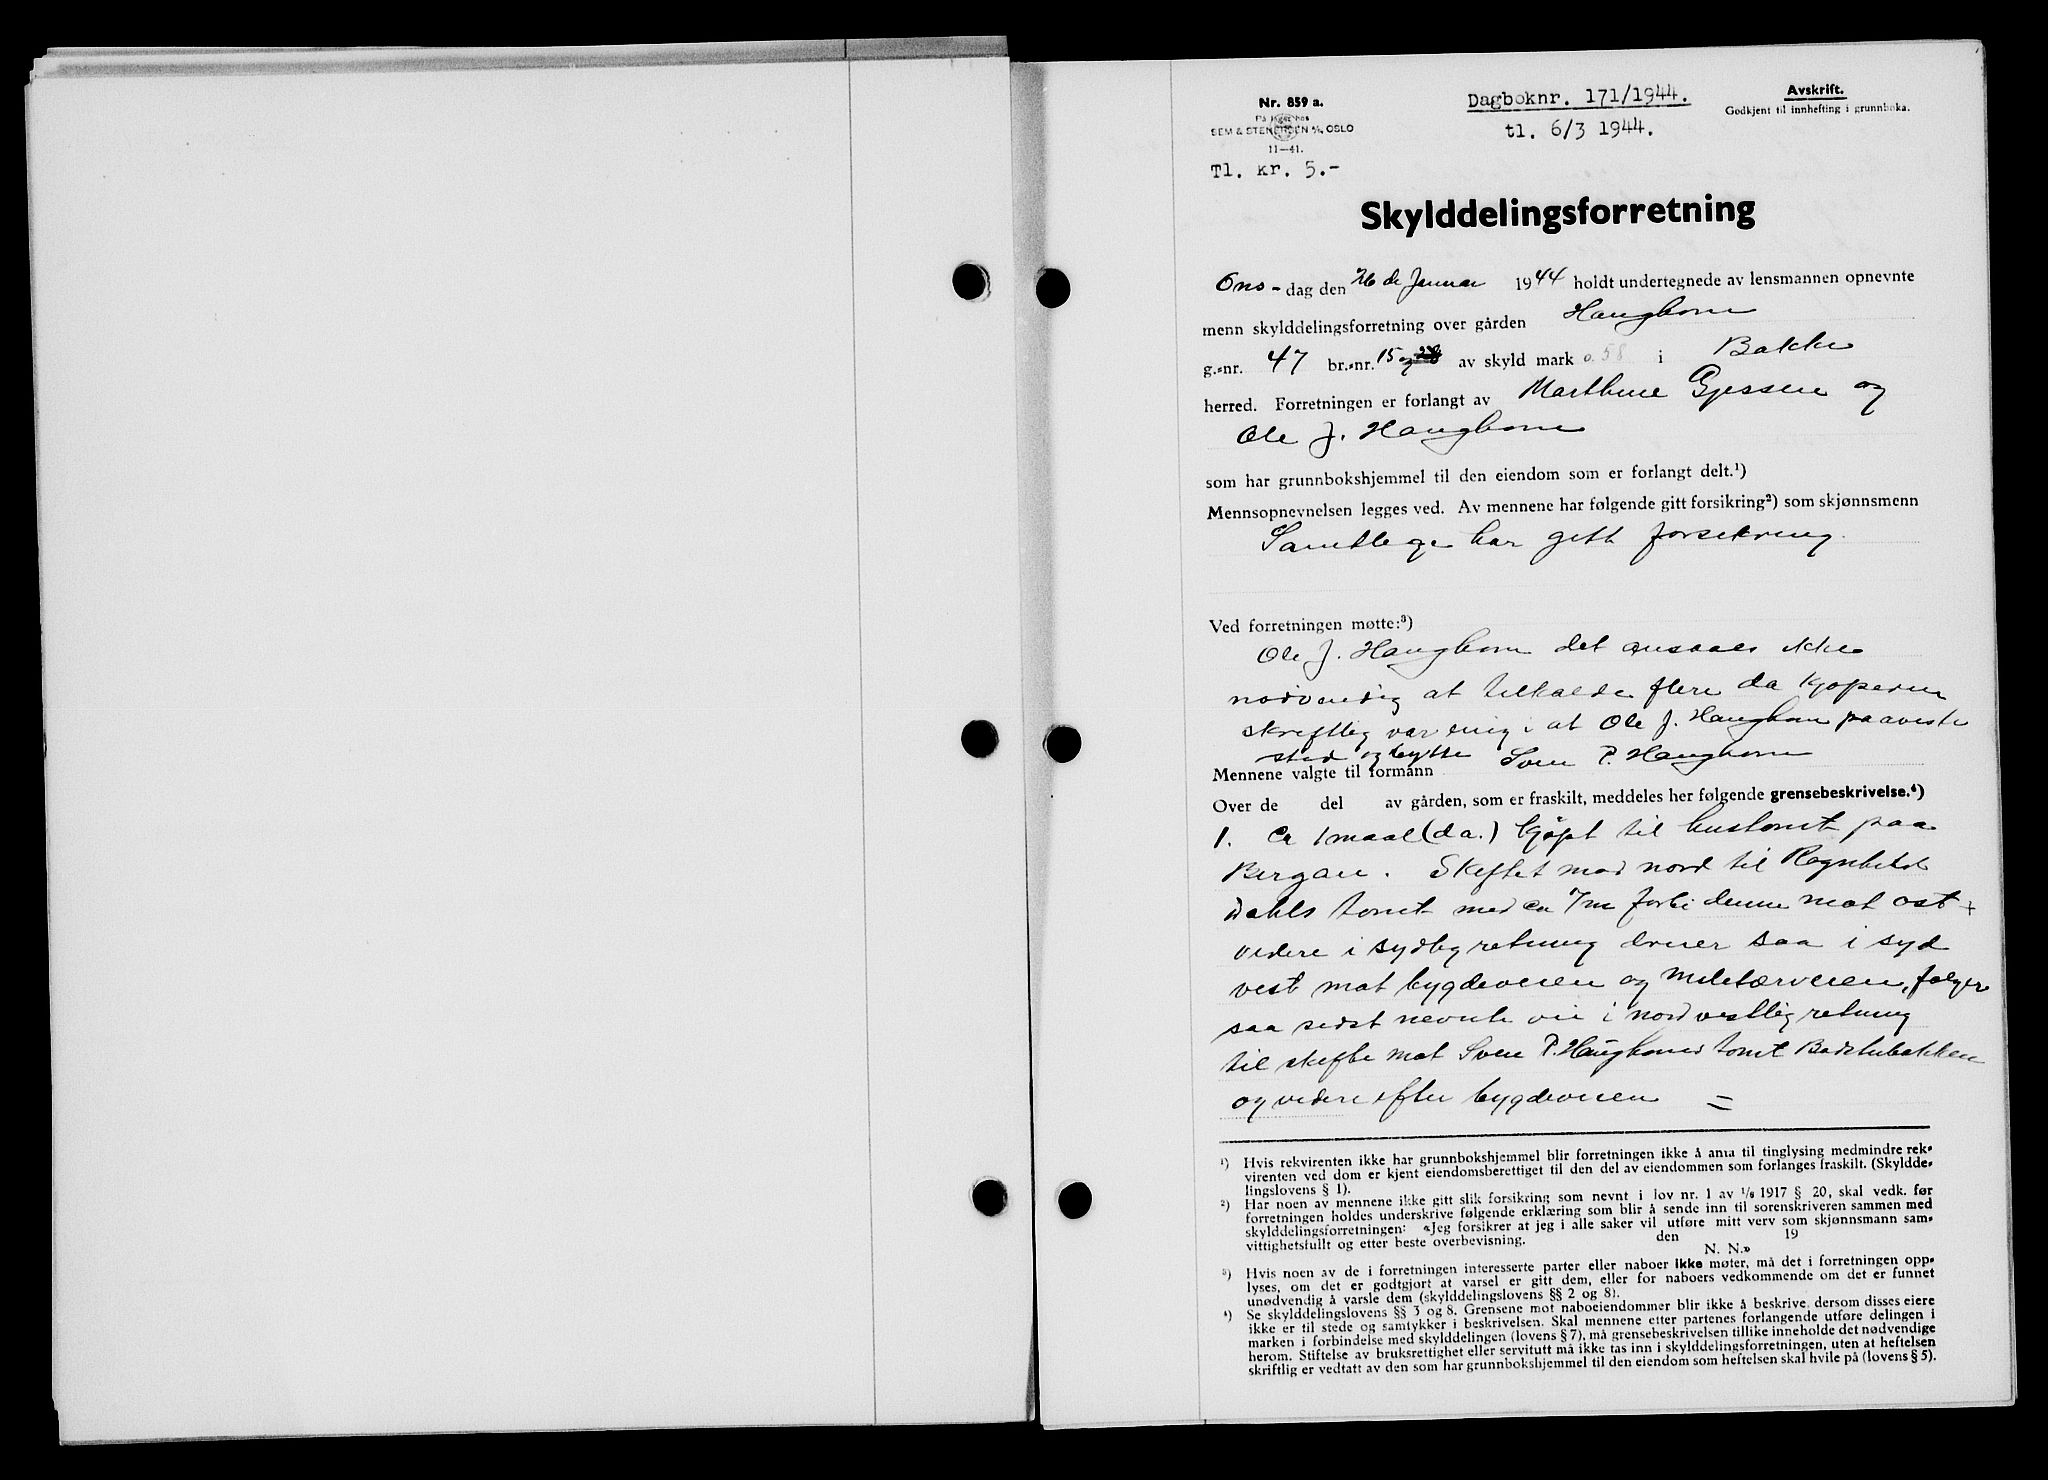 Nr. 859 a.
På lager hos
SEM & STENERSEN A/S, OSLO
11—41.
Tl. kr. 5.-
Dagboknr. 171/1944.
tl. 6/3 1944.
Avskrift.
Godkjent til innhefting i grunnboka.
Skylddelingsforretning
Ons-dag den 26 de Januar 1944 holdt undertegnede av lensmannen opnevnte
menn skylddelingsforretning over gården Haugbom
g.-nr. 47 br.-nr. 15 og 28 av skyld mark 0.58 i Bakke
herred. Forretningen er forlangt av Marthine Gjessen og
Ole J. Haugbom
som har grunnbokshjemmel til den eiendom som er forlangt delt.¹)
Mennsopnevnelsen legges ved. Av mennene har følgende gitt forsikring²) som skjønnsmenn
Samtlege har gett forsikring.
Ved forretningen møtte:³)
Ole J. Haugbom det ansaaes ikke
nødvendig at tilkalde flere da kjøperen
skriftlig var enig i at Ole J. Haugbom paaviste
sted og bytte Sven P. Haugbom
Mennene valgte til formann
Over de del av gården, som er fraskilt, meddeles her følgende grensebeskrivelse.⁴)
1. Ca 1 maal (da.) kjøpt til hustomt paa
Bergan. Skiftet mod nord til Ragnhild
Dahls tomt med ca 7 m forbi denne mot ost +
videre i sydlig retning dreier saa i syd
vest mot bygdeveien og Miletærveien, følger
saa sidst nevnte vei i nordvestlig retning
til skifte mot Sven P. Haugboms tomt Badstubakken
og videre efter bygdeveien =
¹) Hvis rekvirenten ikke har grunnbokshjemmel blir forretningen ikke å anta til tinglysing medmindre rek-
virenten ved dom er kjent eiendomsberettiget til den del av eiendommen som forlanges fraskilt. (Skyldde-
lingslovens § 1).
²) Har noen av mennene ikke gitt slik forsikring som nevnt i lov nr. 1 av 1/6 1917 § 20, skal vedk. før
forretningen holdes underskrive følgende erklæring som blir å sende inn til sorenskriveren sammen med
skylddelingsforretningen: «Jeg forsikrer at jeg i alle saker vil utføre mitt verv som skjønnsmann sam-
vittighetsfullt og etter beste overbevisning. den 19
N. N.»
³) Hvis noen av de i forretningen interesserte parter eller naboer ikke møter, må det i forretningen opp-
lyses, om det er godtgjort at varsel er gitt dem, eller for naboers vedkommende om det er funnet
unødvendig å varsle dem (skylddelingslovens §§ 2 og 8).
⁴) Se skylddelingslovens §§ 3 og 8. Grensene mot naboeiendommer blir ikke å beskrive, dersom disses eiere
ikke er til stede og samtykker i beskrivelsen. Skal mennene etter partenes forlangende utføre delingen i
marken i forbindelse med skylddelingen (lovens § 7), må grensebeskrivelsen tillike inneholde det nødvendige
herom. Stiftelse av bruksrettighet eller servitutt må ikke tas inn i skylddelingsforretningen, uten at heftelsen
skriftlig er vedtatt av den som har grunnbokshjemmel til den eiendom som heftelsen skal hvile på (lovens § 5).